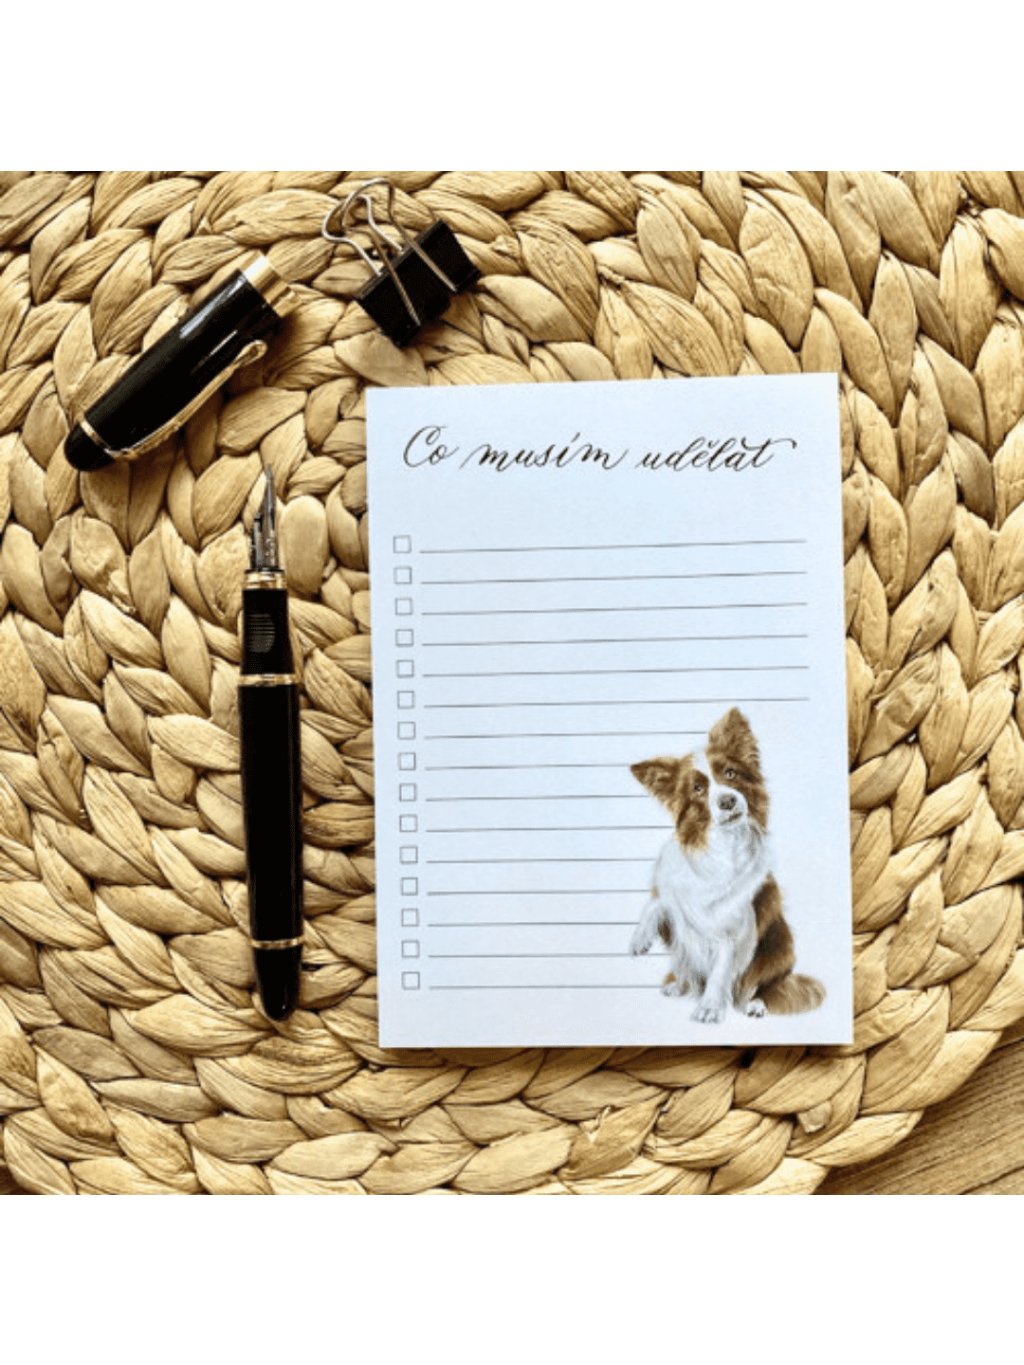 Co musím udělat